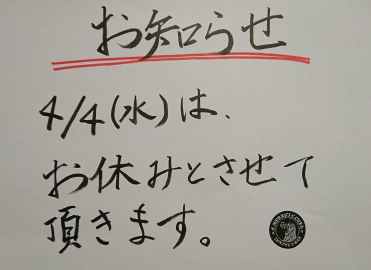 お知らせ
4/4(水)は、
お休みとさせて
頂きます。